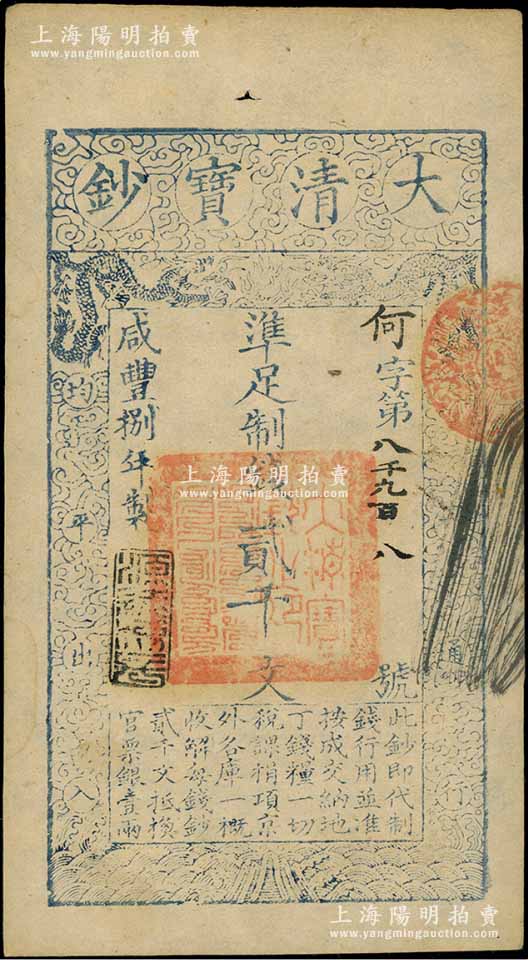 上海陽明拍賣
www.yangmingauction.com
大清寶鈔
何字第八千九百八號
準足制錢貳千文
咸豐捌年製
均平出入
通行
此鈔即代制
錢行用並准
按成交納地
丁錢糧一切
稅課捐項京
外各庫一概
收解每錢鈔
貳千文抵換
官票銀壹兩
上海陽明拍賣
www.yangmingauction.com
上海陽明拍賣
www.yangmingauction.com